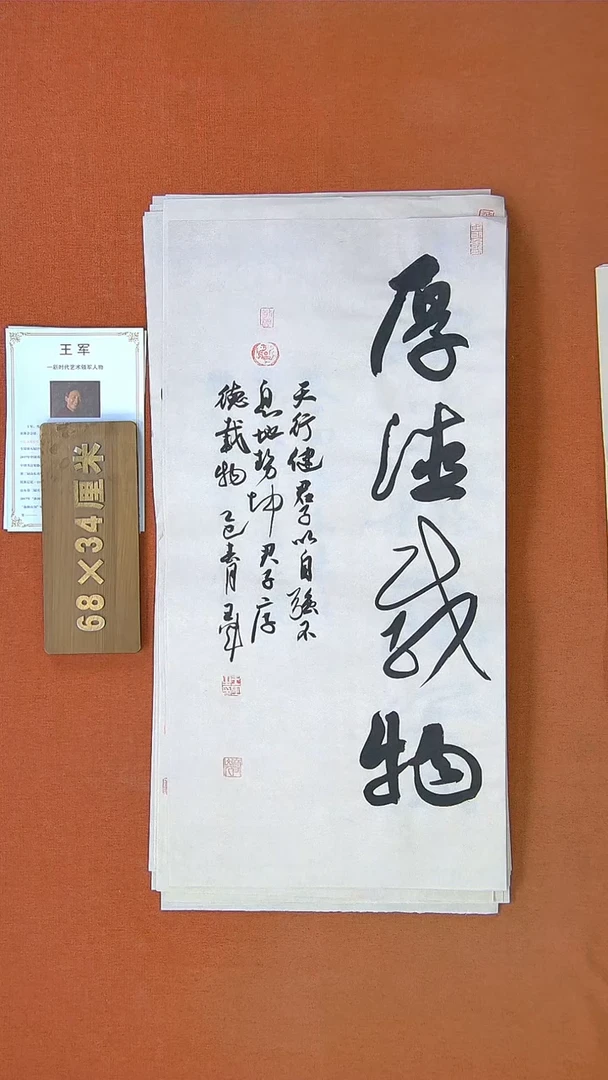 厚德载物
天行健君子以自强不
息地势坤君子厚
德载物 乙巳春月 王军
王军
一新时代艺术领军人物
68×34厘米